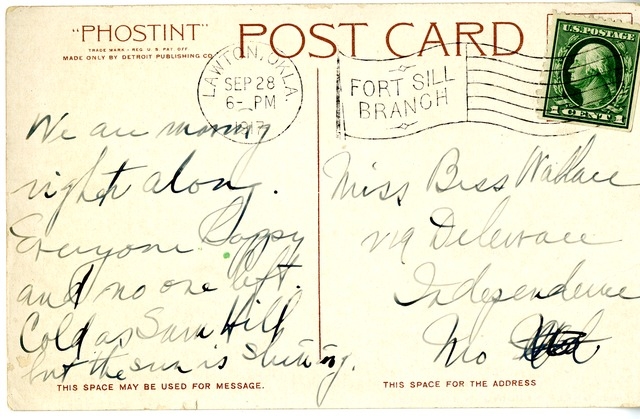 "PHOSTINT"
TRADE MARK - REG. U.S. PAT. OFF
MADE ONLY BY DETROIT PUBLISHING CO.
POST CARD
LAWTON, OKLA.
SEP 28
6- PM
1917
FORT SILL
BRANCH
U.S. POSTAGE
1 CENT 1
We are moving
right along.
Everyone happy
and no one left.
Cold as Sam Hill
but the sun is shining.
Miss Bess Wallace
219 Delaware
Independence
Mo
THIS SPACE MAY BE USED FOR MESSAGE.
THIS SPACE FOR THE ADDRESS